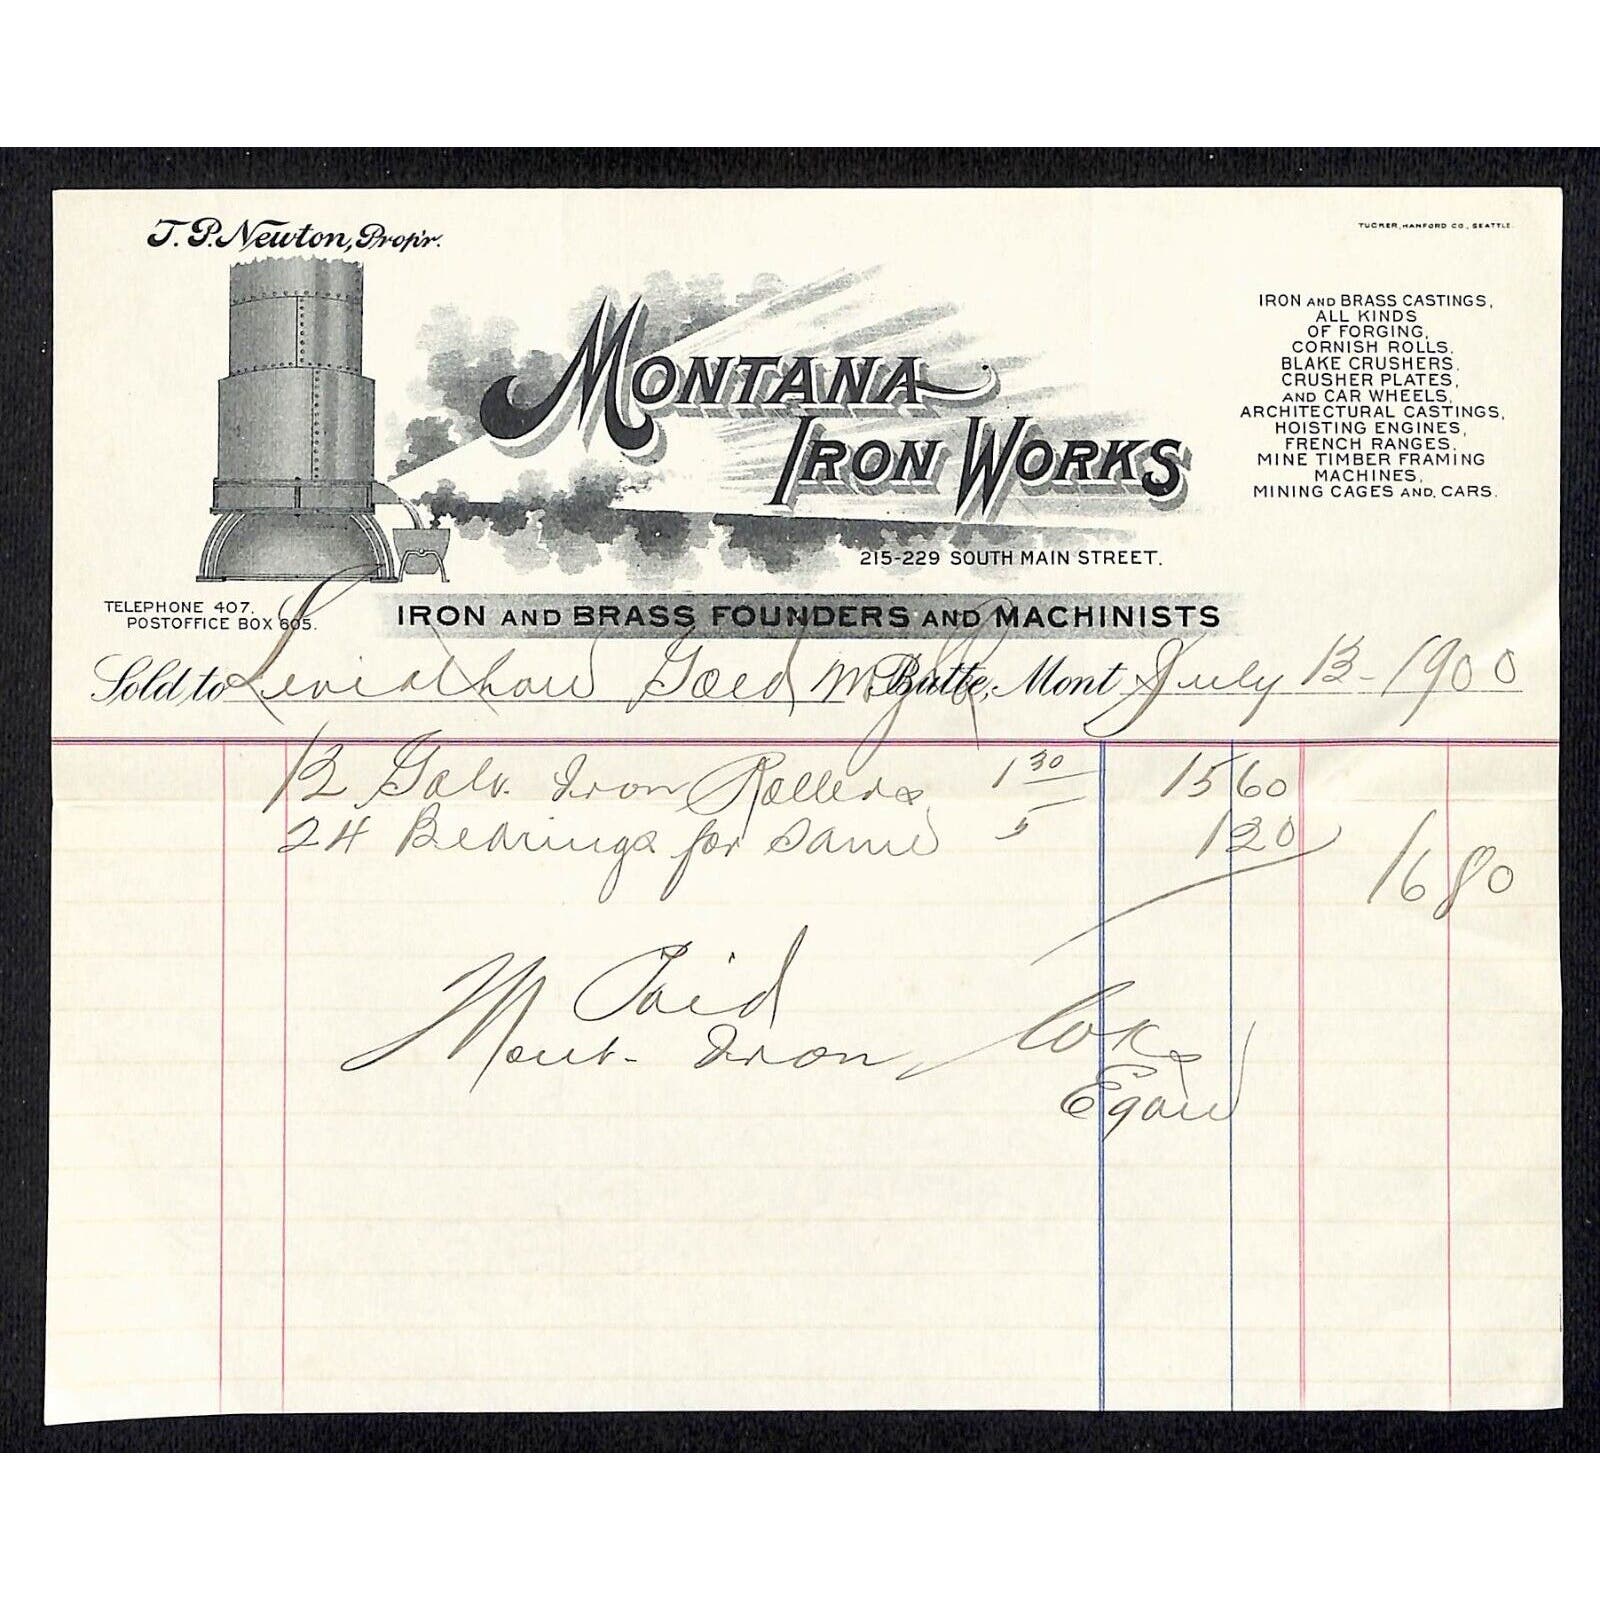 T. P. Newton, Prop'r.
TUCKER, HANFORD CO., SEATTLE.
MONTANA
IRON WORKS
IRON AND BRASS CASTINGS,
ALL KINDS
OF FORGING,
CORNISH ROLLS,
BLAKE CRUSHERS,
CRUSHER PLATES,
AND CAR WHEELS,
ARCHITECTURAL CASTINGS,
HOISTING ENGINES,
FRENCH RANGES,
MINE TIMBER FRAMING
MACHINES,
MINING CAGES AND, CARS.
215-229 SOUTH MAIN STREET.
TELEPHONE 407.
POSTOFFICE BOX 605.
IRON AND BRASS FOUNDERS AND MACHINISTS
Sold to Leviathan Gold M Butte, Mont July 13 - 1900
12 Galv. Iron Rollers 1 30 15 60
24 Bearings for Same 5 1 20
16 80
Paid
Mont. Iron Wk